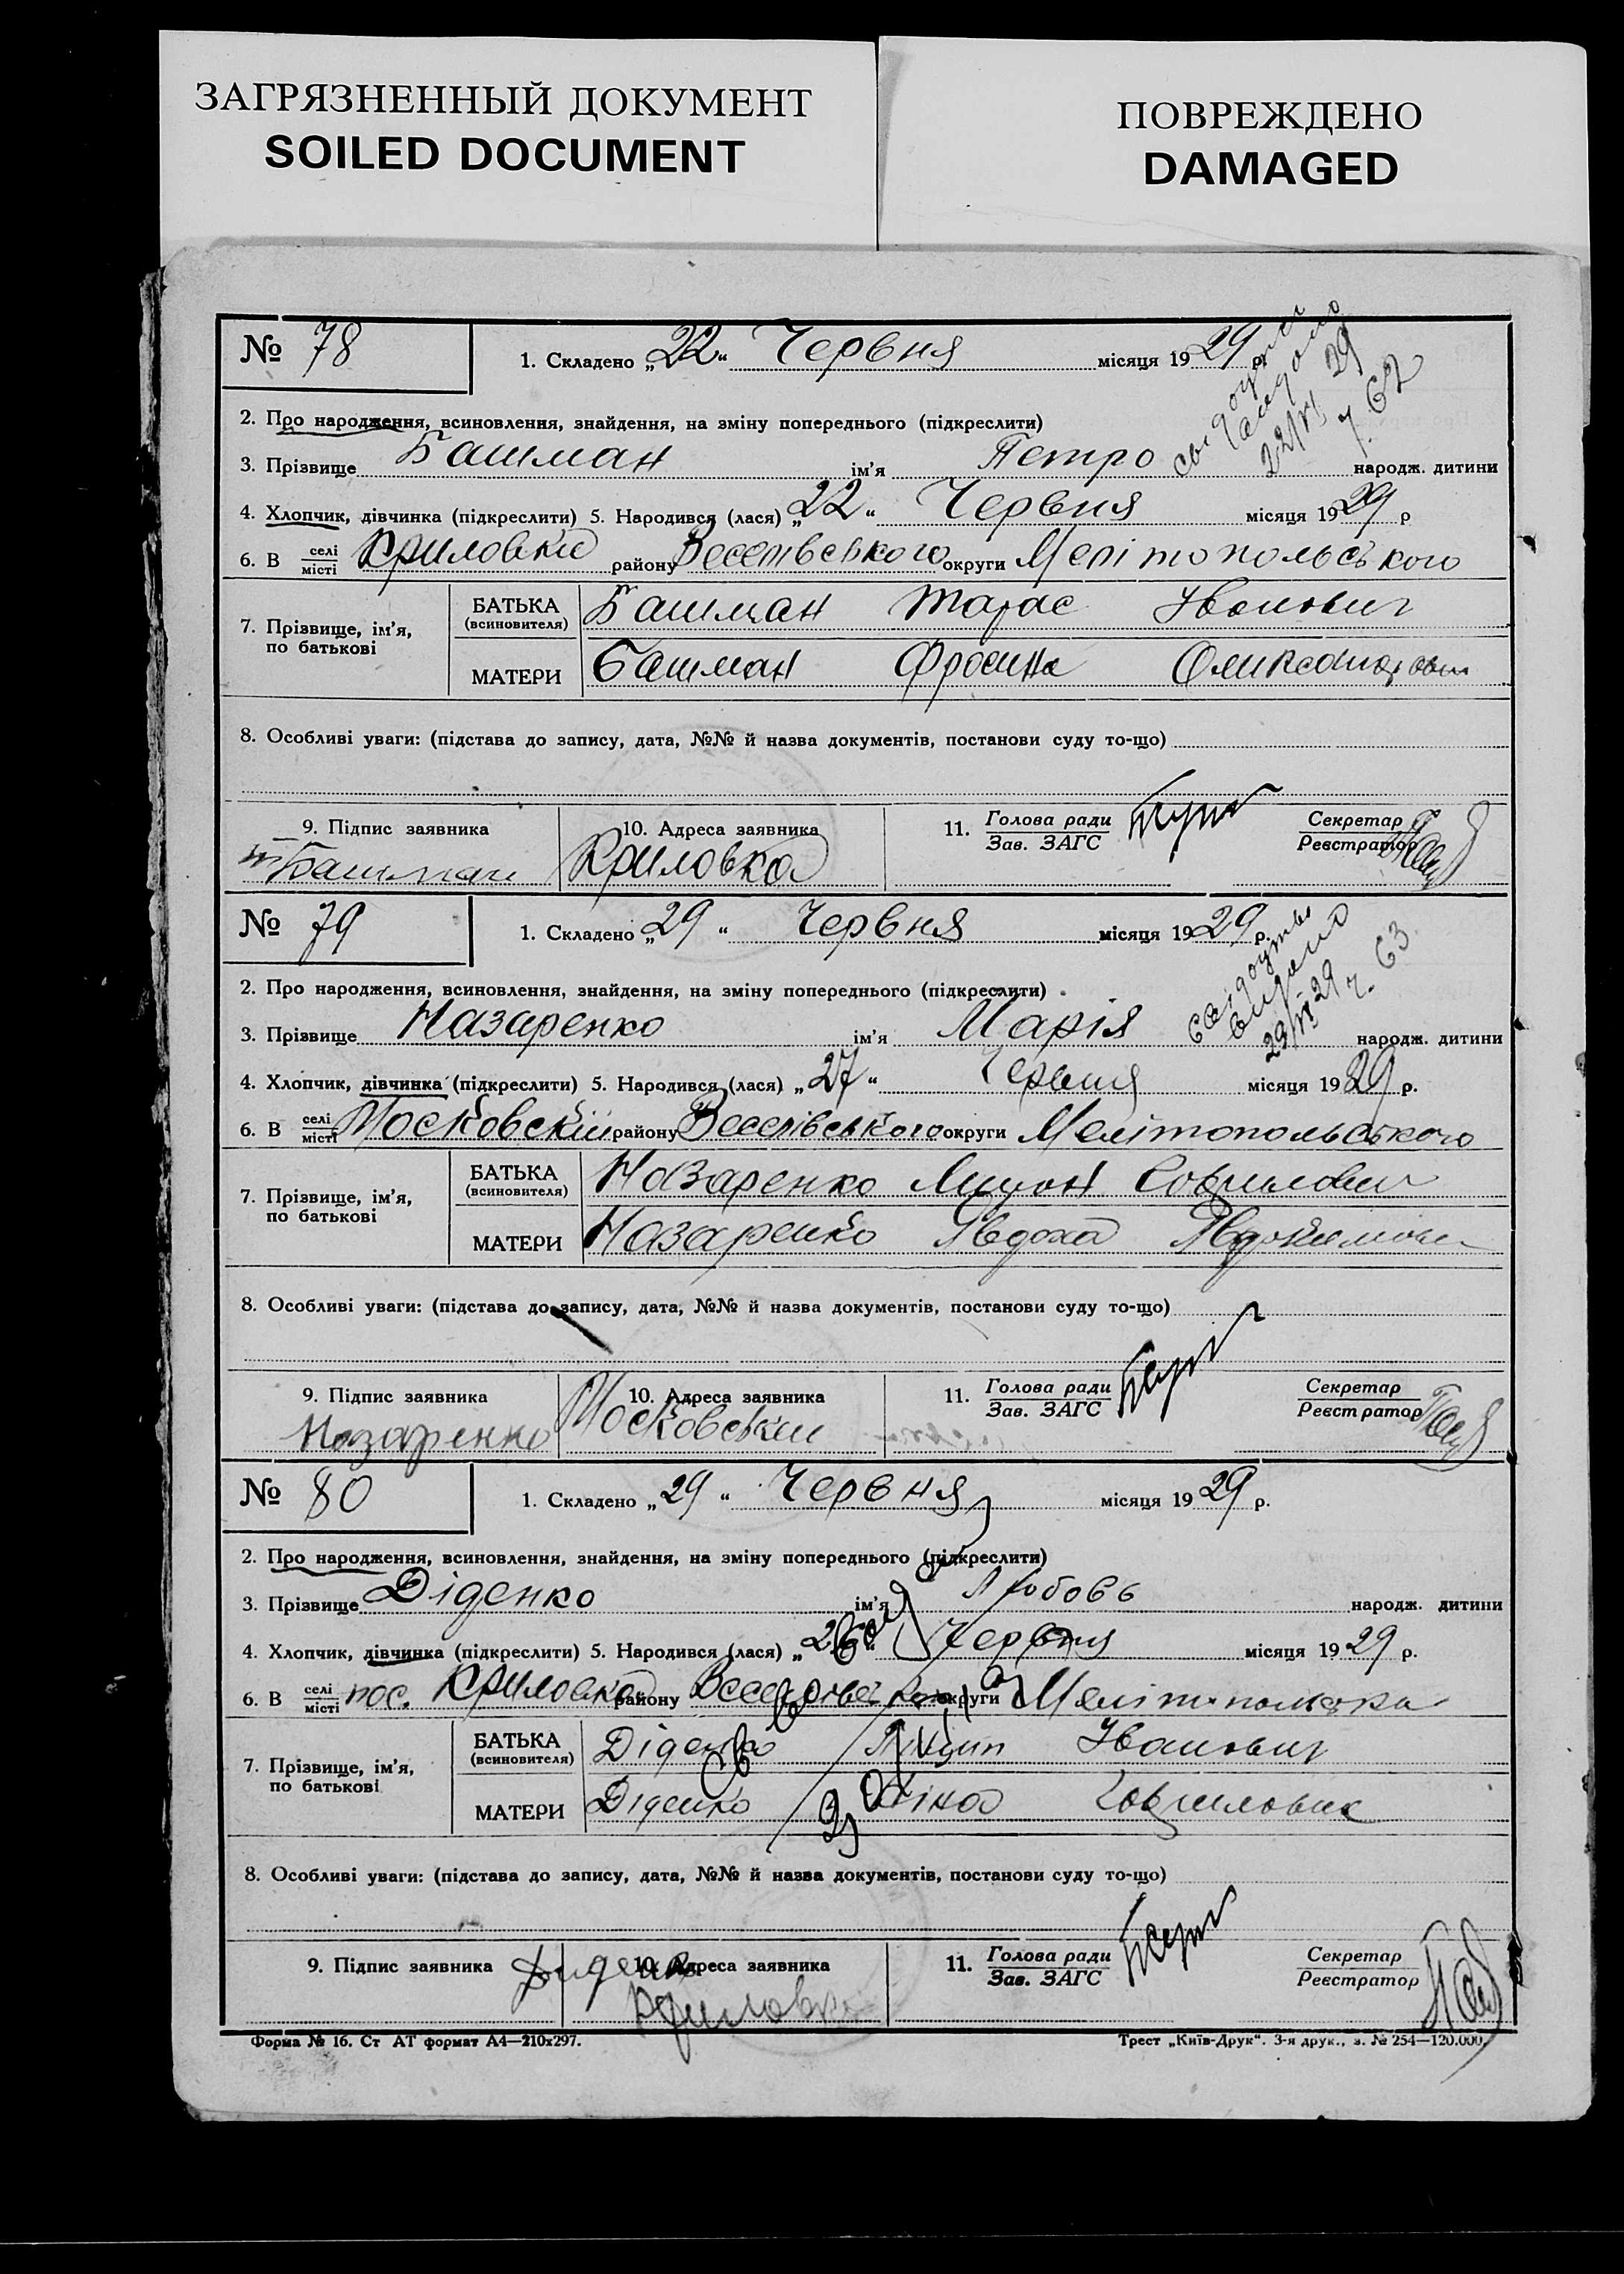 ЗАГРЯЗНЕННЫЙ ДОКУМЕНТ
SOILED DOCUMENT
ПОВРЕЖДЕНО
DAMAGED
№ 78
1. Складено „22“ Червня місяця 1929 р.
2. Про народження, всиновлення, знайдення, на зміну попереднього (підкреслити)
3. Прізвище Башман ім'я Петро народж. дитини
22/VI 29
ч. 62
4. Хлопчик, дівчинка (підкреслити) 5. Народився (лася) „22“ Червня місяця 1929 р
6. В селі місті Криловки району Веселівського округи Мелітопольського
7. Прізвище, ім'я, по батькові
БАТЬКА (всиновителя) Башман Тарас Іванович
МАТЕРИ Башман Фросина
8. Особливі уваги: (підстава до запису, дата, №№ й назва документів, постанови суду то-що)
9. Підпис заявника Башман
10. Адреса заявника Криловка
11. Голова ради Зав. ЗАГС
Секретар Реєстратор
№ 79
1. Складено „29“ Червня місяця 1929 р.
2. Про народження, всиновлення, знайдення, на зміну попереднього (підкреслити)
3. Прізвище Назаренко ім'я Марія народж. дитини
свідоцтво
видано
29/VI 29
ч. 63
4. Хлопчик, дівчинка (підкреслити) 5. Народився (лася) „27“ Червня місяця 1929 р.
6. В селі місті Московскій району Веселівського округи Мелітопольського
7. Прізвище, ім'я, по батькові
БАТЬКА (всиновителя) Назаренко
МАТЕРИ Назаренко Явдоха
8. Особливі уваги: (підстава до запису, дата, №№ й назва документів, постанови суду то-що)
9. Підпис заявника Назаренко
10. Адреса заявника
11. Голова ради Зав. ЗАГС
Секретар Реєстратор
№ 80
1. Складено „29“ Червня місяця 1929 р.
2. Про народження, всиновлення, знайдення, на зміну попереднього (підкреслити)
3. Прізвище Діденко ім'я Любовь народж. дитини
4. Хлопчик, дівчинка (підкреслити) 5. Народився (лася) „26“ Червня місяця 1929 р.
6. В селі місті пос. Криловка району округи
7. Прізвище, ім'я, по батькові
БАТЬКА (всиновителя) Діденко Іванович
МАТЕРИ Діденко
8. Особливі уваги: (підстава до запису, дата, №№ й назва документів, постанови суду то-що)
9. Підпис заявника
10. Адреса заявника Криловка
11. Голова ради Зав. ЗАГС
Секретар Реєстратор
Форма № 16. Ст АТ формат А4—210х297.
Трест „Київ-Друк“. 3-я друк., з. № 254—120.000.